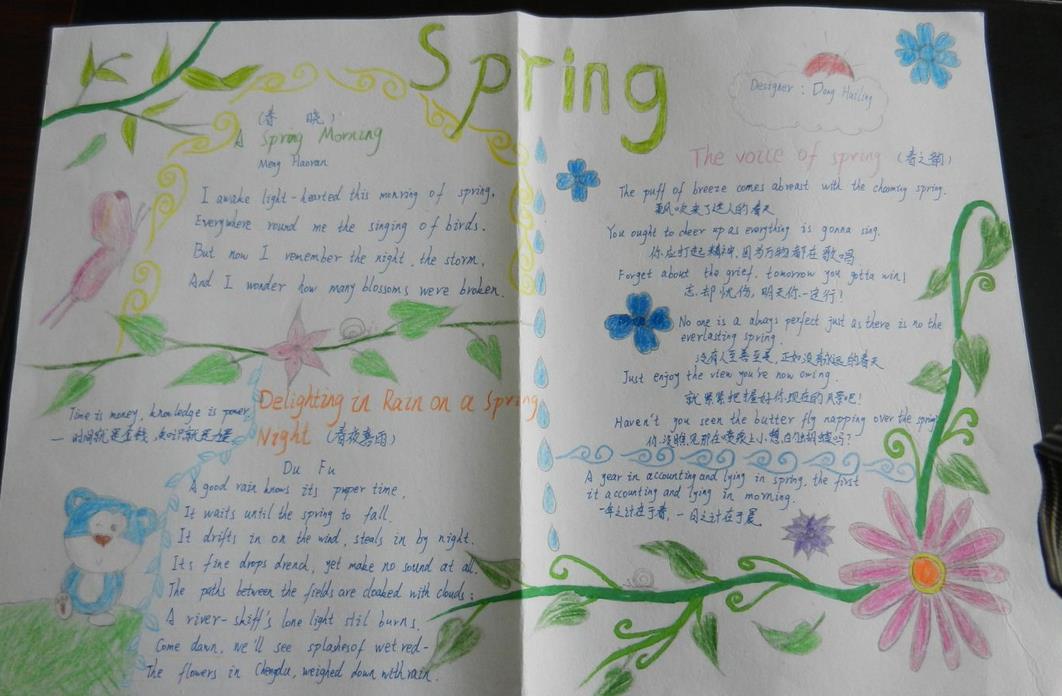 Spring
Designer: Dong Huiling
(春 晓)
A Spring Morning
Meng Haoran
I awake light-hearted this monring of spring,
Everywhere round me the singing of birds.
But now I remember the night, the storm,
And I wonder how many blossoms were broken.
Time is money, knowledge is power
一时间就是金钱,知识就是力量
Delighting in Rain on a Spring
Night (春夜喜雨)
Du Fu
A good rain knows its puper time,
It waits until the spring to fall.
It drifts in on the wind, steals in by night.
Its fine drops drench, yet make no sound at all.
The paths between the fields are cloaked with clouds;
A river-skiff's lone light still burns.
Come dawn, we'll see splashes of wet red-
The flowers in Chengdu, weighed down with rain.
The voice of spring (春之韵)
The puff of breeze comes abreast with the chooming spring.
吹来了迷人的春天
You ought to cheer up as everything is gonna sing.
你应打起精神,因为万物都在歌唱
Forget about the grief, tomorrow you gotta win!
忘却忧伤,明天你一定行!
No one is a always perfect just as there is no the
everlasting spring.
没有人至善至美,正如没有永远的春天
Just enjoy the view you're now owing.
就紧紧把握好你现在的风景吧!
Haven't you seen the butter fly napping over the spring
你没瞧见那在喷泉上小憩的蝴蝶吗?
A year in accounting and lying in spring, the first
it accounting and lying in morning.
一年之计在于春,一日之计在于晨